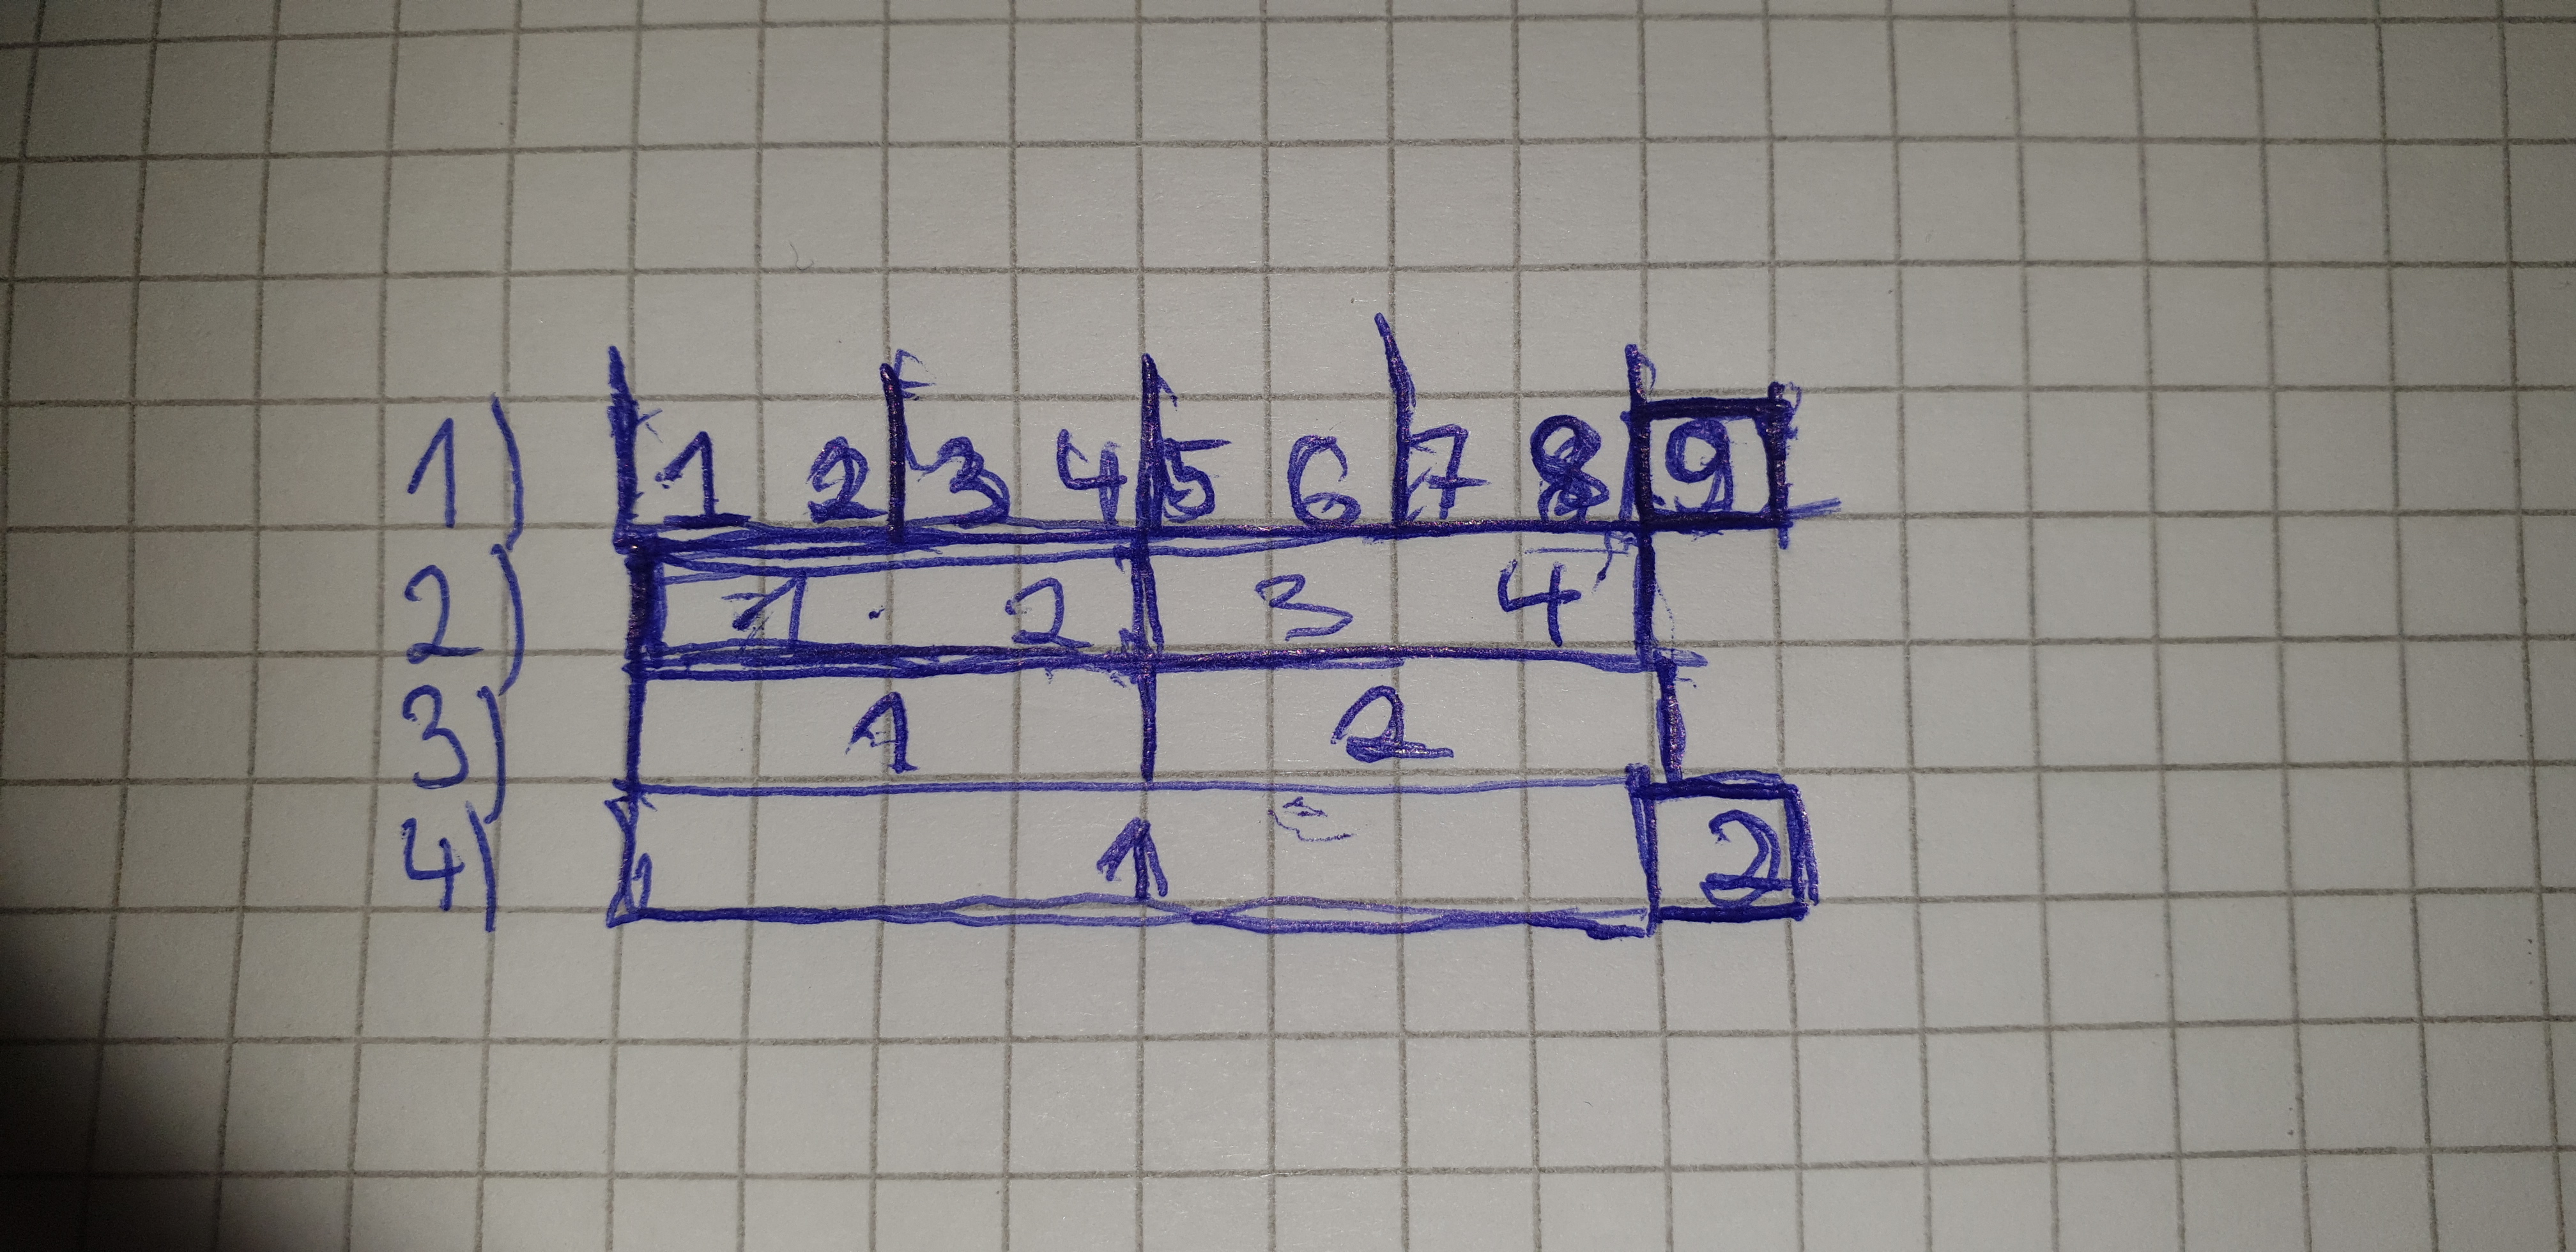 1) 1 2 3 4 5 6 7 8 9
2) 1 2 3 4
3) 1 2
4) 1 2